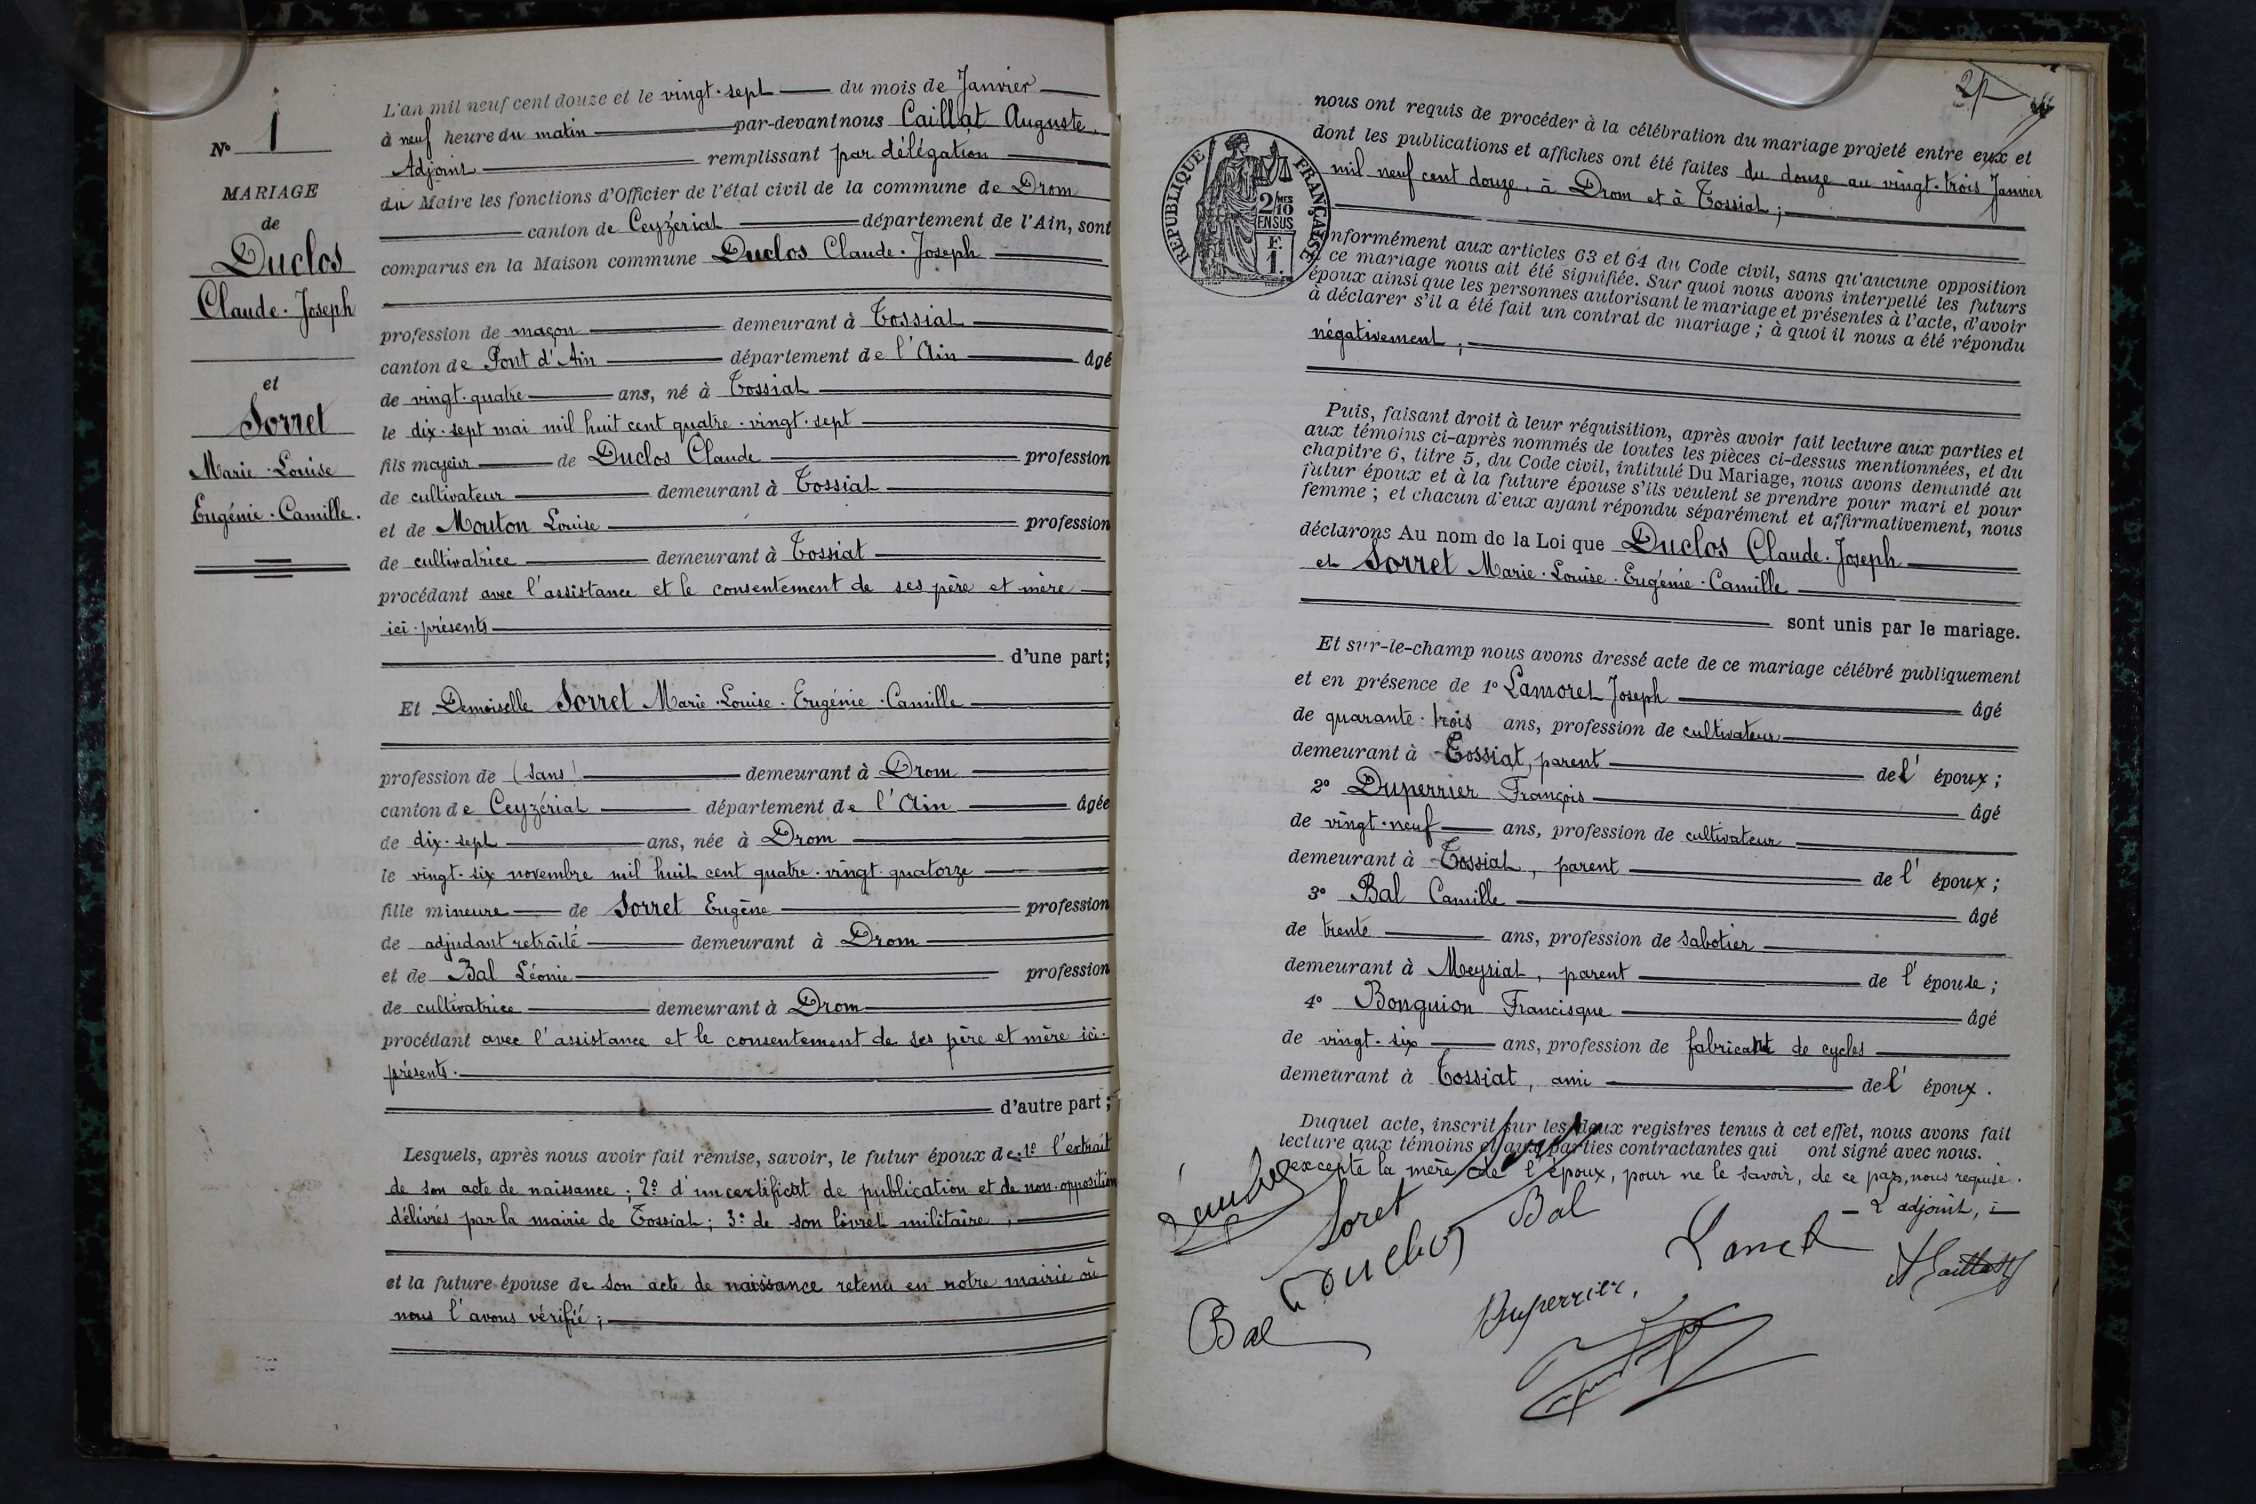 N° 1
MARIAGE
de
Duclos
Claude-Joseph
et
Sorret
Marie-Louise
Eugénie-Camille.
L'an mil neuf cent douze et le vingt-sept du mois de Janvier
à neuf heure du matin par-devant nous Caillat Auguste,
Adjoint remplissant par délégation
du Maire les fonctions d'Officier de l'état civil de la commune de Drom
canton de Ceyzériat département de l'Ain, sont
comparus en la Maison commune Duclos Claude-Joseph
profession de maçon demeurant à Tossiat
canton de Pont d'Ain département de l'Ain âgé
de vingt-quatre ans, né à Tossiat
le dix-sept mai mil huit cent quatre-vingt-sept
fils majeur de Duclos Claude profession
de cultivateur demeurant à Tossiat
et de Mouton Louise profession
de cultivatrice demeurant à Tossiat
procédant avec l'assistance et le consentement de ses père et mère
ici-présents
d'une part;
Et Demoiselle Sorret Marie-Louise-Eugénie-Camille
profession de (sans) demeurant à Drom
canton de Ceyzériat département de l'Ain âgée
de dix-sept ans, née à Drom
le vingt-six novembre mil huit cent quatre-vingt-quatorze
fille mineure de Sorret Eugène profession
de adjudant retraité demeurant à Drom
et de Bal Léonie profession
de cultivatrice demeurant à Drom
procédant avec l'assistance et le consentement de ses père et mère ici-
présents.
d'autre part;
Lesquels, après nous avoir fait remise, savoir, le futur époux de: 1° l'extrait
de son acte de naissance; 2° d'un certificat de publication et de non-opposition
délivrés par la mairie de Tossiat; 3° de son livret militaire,
et la future épouse de son acte de naissance retenu en notre mairie où
nous l'avons vérifié;
2
nous ont requis de procéder à la célébration du mariage projeté entre eux et
dont les publications et affiches ont été faites du douze au vingt-trois Janvier
mil neuf cent douze, à Drom et à Tossiat;
RÉPUBLIQUE FRANÇAISE
2/10 MES
EN SUS
F.
1.
nformément aux articles 63 et 64 du Code civil, sans qu'aucune opposition
ce mariage nous ait été signifiée. Sur quoi nous avons interpellé les futurs
époux ainsi que les personnes autorisant le mariage et présentes à l'acte, d'avoir
à déclarer s'il a été fait un contrat de mariage; à quoi il nous a été répondu
négativement;
Puis, faisant droit à leur réquisition, après avoir fait lecture aux parties et
aux témoins ci-après nommés de toutes les pièces ci-dessus mentionnées, et du
chapitre 6, titre 5, du Code civil, intitulé Du Mariage, nous avons demandé au
futur époux et à la future épouse s'ils veulent se prendre pour mari et pour
femme; et chacun d'eux ayant répondu séparément et affirmativement, nous
déclarons Au nom de la Loi que Duclos Claude-Joseph
et Sorret Marie-Louise-Eugénie-Camille
sont unis par le mariage.
Et sur-le-champ nous avons dressé acte de ce mariage célébré publiquement
et en présence de 1° Lamoret Joseph âgé
de quarante-trois ans, profession de cultivateur
demeurant à Tossiat, parent de l'époux;
2° Duperrier François âgé
de vingt-neuf ans, profession de cultivateur
demeurant à Tossiat, parent de l'époux;
3° Bal Camille âgé
de trente ans, profession de sabotier
demeurant à Meyriat, parent de l'épouse;
4° Bonguion Francisque âgé
de vingt-six ans, profession de fabricant de cycles
demeurant à Tossiat, ami de l'époux.
Duquel acte, inscrit sur les deux registres tenus à cet effet, nous avons fait
lecture aux témoins et aux parties contractantes qui ont signé avec nous.
excepté la mère de l'époux, pour ne le savoir, de ce par nous requise.
L'adjoint,
Soret
Bal
Duclos
Bal
Duperrier,
A Caillat